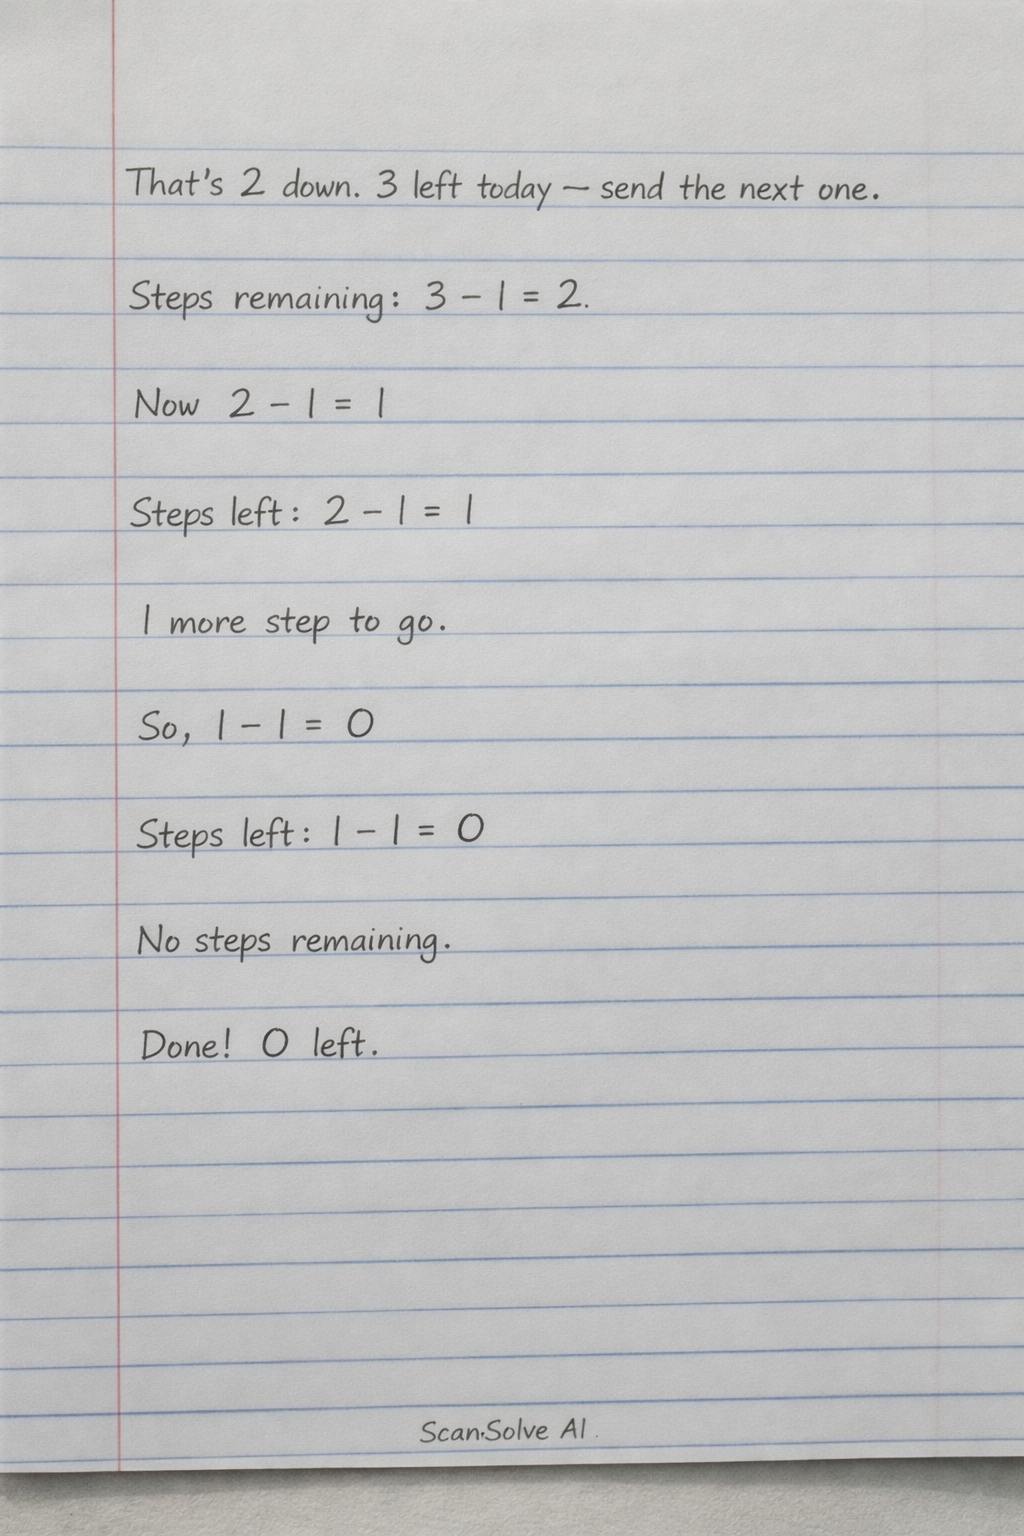 That's 2 down. 3 left today — send the next one.
Steps remaining: 3 – 1 = 2.
Now 2 – 1 = 1
Steps left: 2 – 1 = 1
1 more step to go.
So, 1 – 1 = 0
Steps left: 1 – 1 = 0
No steps remaining.
Done! 0 left.
Scan·Solve AI